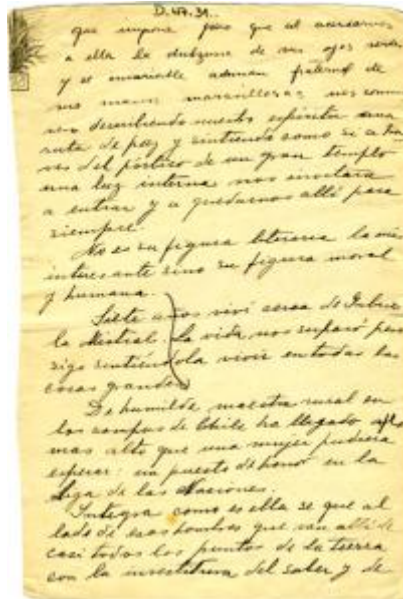 D.47.31.
que impone pero que al acercarnos
a ella la dulzura de sus ojos verdes
y el invariable ademan fraternal de
sus manos maravillosas nos
describiendo nuestro espíritu una
ruta de paz y sintiendo como si a tra-
ves del pórtico de un gran templo
una luz interna nos invitara
a entrar y a quedarnos allí para
siempre.
No es su figura literaria la más
interesante sino su figura moral
y humana.
Siete años viví cerca de Gabrie-
la Mistral. La vida nos separó pero
sigo sintiéndola vivir en todas las
cosas grandes.
De humilde maestra rural en
los campos de Chile ha llegado a lo
mas alto que una mujer pudiera
esperar: un puesto de honor en la
Liga de las Naciones.
Integra como es ella se que al
lado de esos hombres que van allí de
casi todos los puntos de la tierra
con la investidura del saber y de